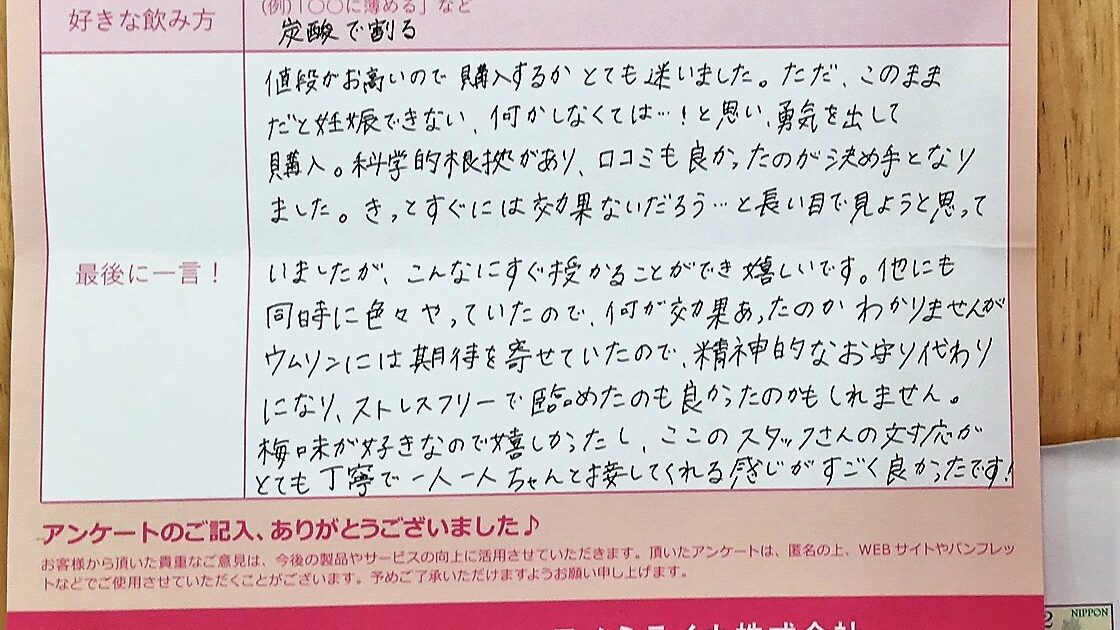 (例)「〇〇に薄める」など
好きな飲み方
炭酸で割る
値段がお高いので購入するかとても迷いました。ただ、このまま
だと妊娠できない、何かしなくては…!と思い、勇気を出して
購入。科学的根拠があり、口コミも良かったのが決め手となり
ました。きっとすぐには効果ないだろう…と長い目で見ようと思って
最後に一言!
いましたが、こんなにすぐ授かることができ嬉しいです。他にも
同時に色々やっていたので、何が効果あったのかわかりませんが
ウムリンには期待を寄せていたので、精神的なお守り代わり
になり、ストレスフリーで臨めたのも良かったのかもしれません。
梅味が好きなので嬉しかったし、ここのスタッフさんの対応が
とても丁寧で一人一人ちゃんと接してくれる感じがすごく良かったです!
アンケートのご記入、ありがとうございました♪
お客様から頂いた貴重なご意見は、今後の製品やサービスの向上に活用させていただきます。頂いたアンケートは、匿名の上、WEBサイトやパンフレッ
トなどでご使用させていただくことがございます。予めご了承いただけますようお願い申し上げます。
株式会社
2 NIPPON